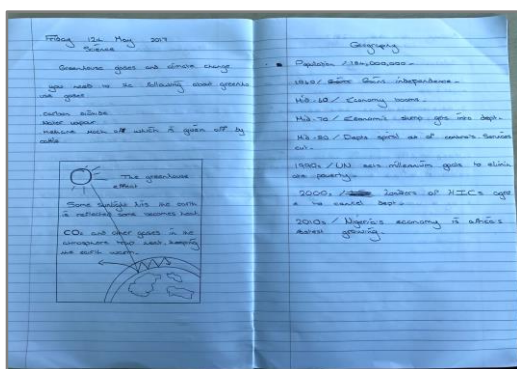 Friday 12th May 2017
Science
Greenhouse gases and climate change
you need to the following about greenho
use gases
carbon dioxide
Water vapour
methane which is given off by
cattle
The greenhouse
effect
Some sunlight hits the earth
is reflected some becomes heat
CO2 and other gases in the
atmosphere trap heat, keeping
the earth warm.
Geography
Population / 184,000,000.
1960 / Gains independence.
Mid-60 / Economy booms.
Mid-70 / Economic slump gets into dept.
Mid-80 / Depts spiral out of controls. Services
cut.
1990s / UN sets millennium goals to elimin
ate poverty.
2000s / leaders of HICs agre
e to cancel dept.
2010s / Nigeria's economy is africa's
fastest growing.